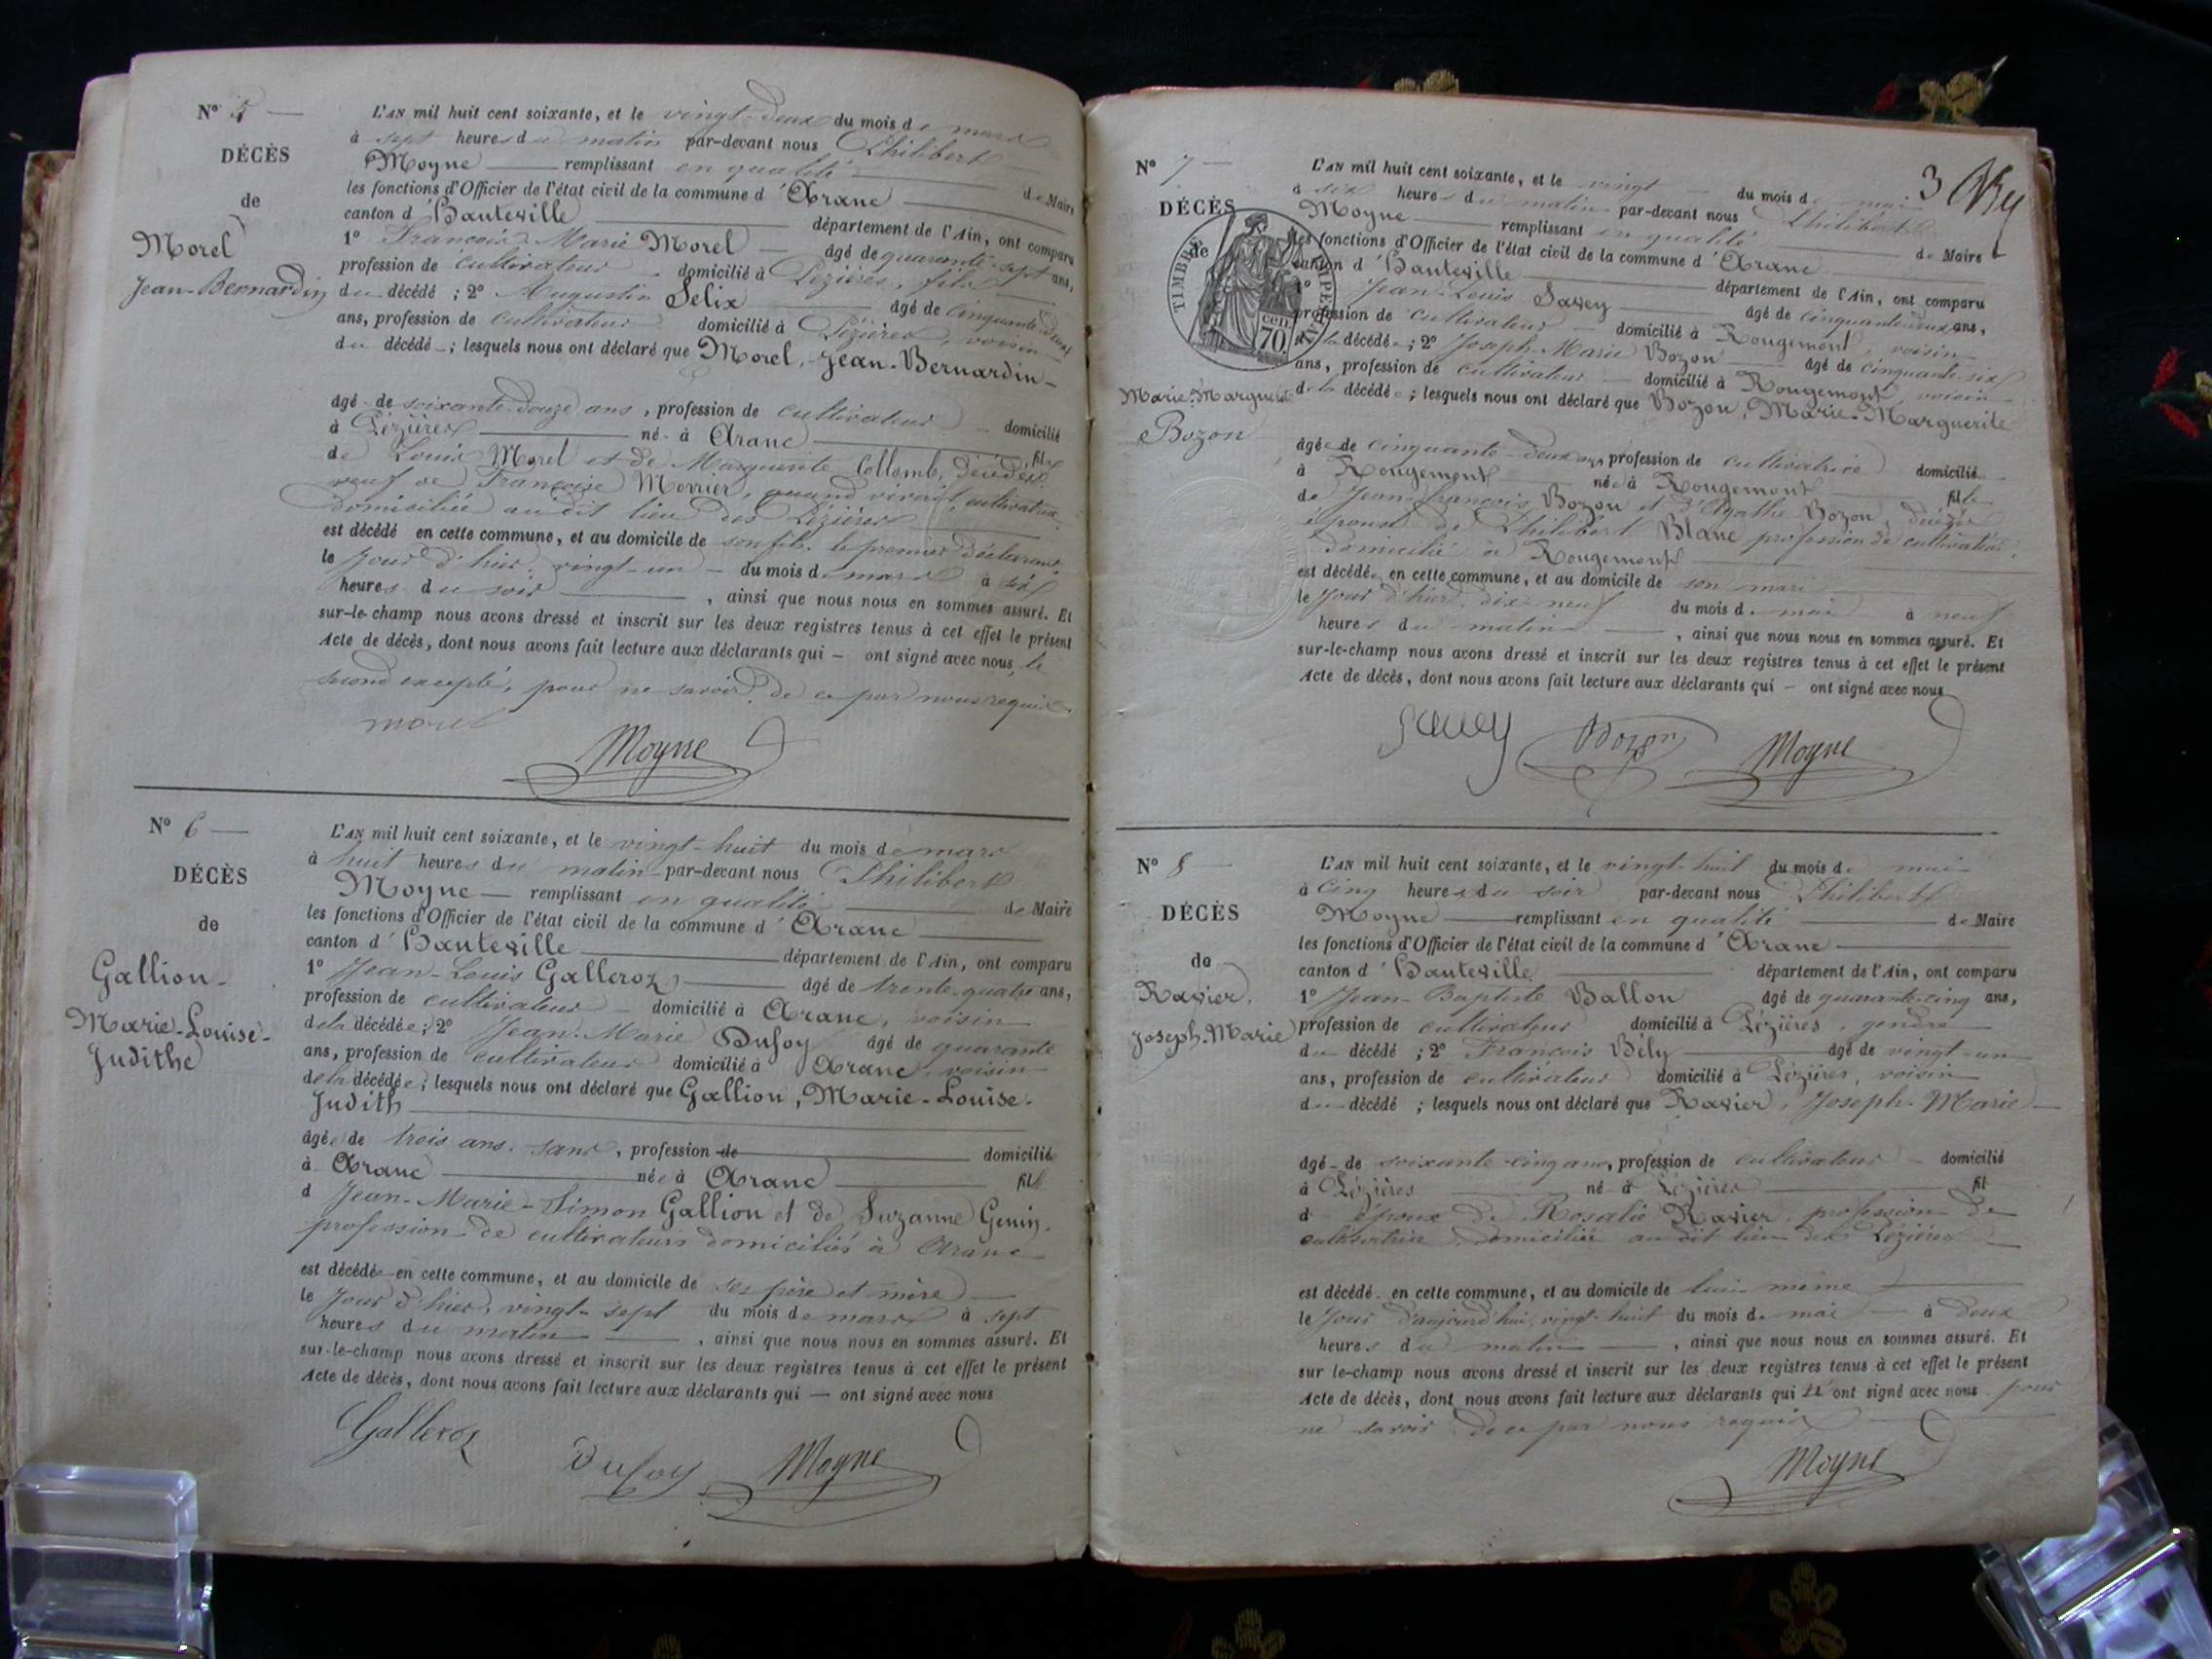 N° 5
DÉCÈS
de
Morel
Jean-Bernardin
L'AN mil huit cent soixante, et le vingt-deux du mois de mars
à sept heures du matin par-devant nous Philibert
Moyne remplissant en qualité de Maire
les fonctions d'Officier de l'état civil de la commune d'Aranc
canton d'Hauteville département de l'Ain, ont comparu
1° François-Marie Morel âgé de quarante-sept ans,
profession de cultivateur domicilié à Lézières, fils
du décédé ; 2° Augustin Felix âgé de cinquante-deux
ans, profession de cultivateur domicilié à Lézières, voisin
du décédé ; lesquels nous ont déclaré que Morel, Jean-Bernardin
âgé de soixante-douze ans, profession de cultivateur domicilié
à Lézières né à Aranc fils
de Louis Morel et de Marguerite Collomb, décédés
veuf de Françoise Morrier, quand vivait, cultivatrice
domiciliée au dit lieu des Lézières
est décédé en cette commune, et au domicile de son fils, le premier déclarant
le jour d'hier, vingt-un du mois de mars à six
heures du soir, ainsi que nous nous en sommes assuré. Et
sur-le-champ nous avons dressé et inscrit sur les deux registres tenus à cet effet le présent
Acte de décès, dont nous avons fait lecture aux déclarants qui ont signé avec nous, le
second excepté, pour ne savoir de ce par nous requis
morel
Moyne
N° 6
DÉCÈS
de
Gallion
Marie-Louise-
Judithe
L'AN mil huit cent soixante, et le vingt-huit du mois de mars
à huit heures du matin par-devant nous Philibert
Moyne remplissant en qualité de Maire
les fonctions d'Officier de l'état civil de la commune d'Aranc
canton d'Hauteville département de l'Ain, ont comparu
1° Jean-Louis Galleroz âgé de trente-quatre ans,
profession de cultivateur domicilié à Aranc, voisin
de la décédée ; 2° Jean-Marie Dufoy âgé de quarante
ans, profession de cultivateur domicilié à Aranc, voisin
de la décédée ; lesquels nous ont déclaré que Gallion, Marie-Louise-
Judith
âgée de trois ans, sans, profession de domiciliée
à Aranc née à Aranc fille
d Jean-Marie-Simon Gallion et de Suzanne Genin,
profession de cultivateurs domiciliés à Aranc
est décédée en cette commune, et au domicile de ses père et mère
le jour d'hier, vingt-sept du mois de mars à sept
heures du matin, ainsi que nous nous en sommes assuré. Et
sur-le-champ nous avons dressé et inscrit sur les deux registres tenus à cet effet le présent
Acte de décès, dont nous avons fait lecture aux déclarants qui ont signé avec nous
Galleroz
Dufoy
Moyne
3
N° 7
DÉCÈS
de
TIMBRE IMPERIAL
70 cen
Marie-Marguerite
Bozon
L'AN mil huit cent soixante, et le vingt du mois de mai
à six heures du matin par-devant nous Philibert
Moyne remplissant en qualité de Maire
les fonctions d'Officier de l'état civil de la commune d'Aranc
canton d'Hauteville département de l'Ain, ont comparu
1° Jean-Louis Savey âgé de cinquante-deux ans,
profession de cultivateur domicilié à Rougemont, voisin
de la décédée ; 2° Joseph-Marie Bozon âgé de cinquante-six
ans, profession de cultivateur domicilié à Rougemont, voisin
de la décédée ; lesquels nous ont déclaré que Bozon, Marie-Marguerite
âgée de cinquante-deux ans, profession de cultivatrice domiciliée
à Rougemont née à Rougemont fille
de Jean-François Bozon et d'Agathe Bozon, décédés
épouse de Philibert Blanc profession de cultivateur
domicilié à Rougemont
est décédée en cette commune, et au domicile de son mari
le jour d'hier, dix-neuf du mois de mai à neuf
heures du matin, ainsi que nous nous en sommes assuré. Et
sur-le-champ nous avons dressé et inscrit sur les deux registres tenus à cet effet le présent
Acte de décès, dont nous avons fait lecture aux déclarants qui ont signé avec nous
Savey
Bozon
Moyne
N° 8
DÉCÈS
de
Ravier,
Joseph-Marie
L'AN mil huit cent soixante, et le vingt-huit du mois de mai
à cinq heures du soir par-devant nous Philibert
Moyne remplissant en qualité de Maire
les fonctions d'Officier de l'état civil de la commune d'Aranc
canton d'Hauteville département de l'Ain, ont comparu
1° Jean-Baptiste Ballon âgé de quarante-cinq ans,
profession de cultivateur domicilié à Lézières, gendre
du décédé ; 2° François Bély âgé de vingt-un
ans, profession de cultivateur domicilié à Lézières, voisin
du décédé ; lesquels nous ont déclaré que Ravier, Joseph-Marie
âgé de soixante-cinq ans, profession de cultivateur domicilié
à Lézières né à Lézières fil
d époux de Rosalie Ravier, profession de
cultivatrice, domiciliée au dit lieu des Lézières
est décédé en cette commune, et au domicile de lui-même
le jour d'aujourd'hui, vingt-huit du mois de mai à deux
heures du matin, ainsi que nous nous en sommes assuré. Et
sur le-champ nous avons dressé et inscrit sur les deux registres tenus à cet effet le présent
Acte de décès, dont nous avons fait lecture aux déclarants qui n'ont signé avec nous pour
ne savoir de ce par nous requis
Moyne